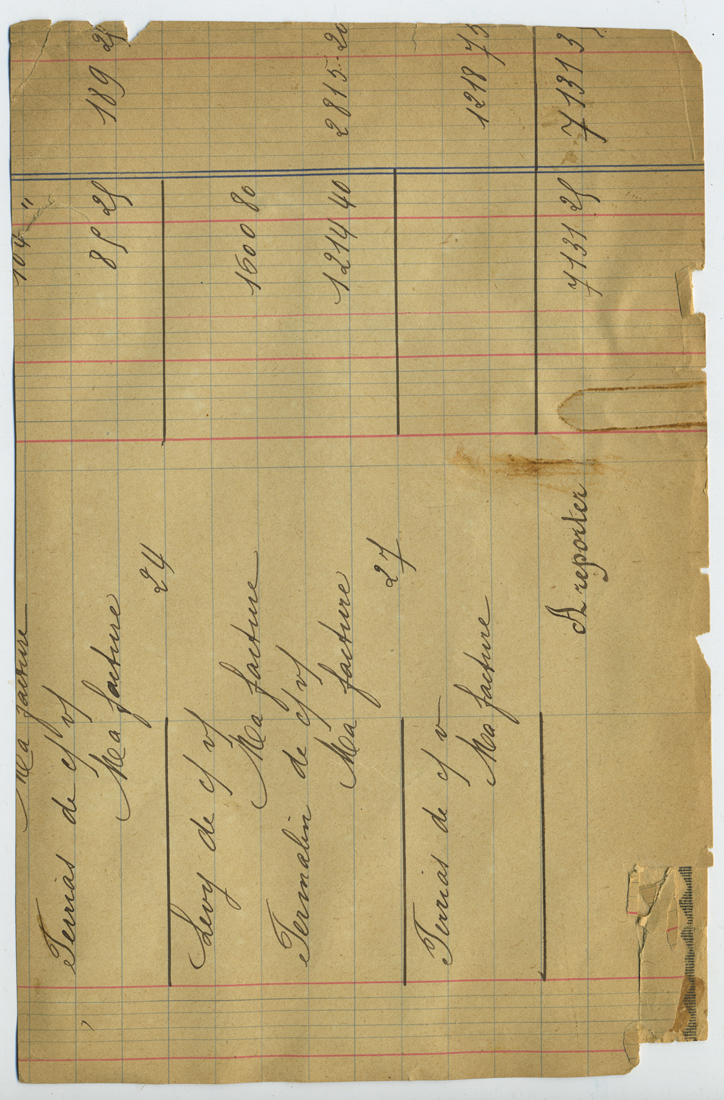 Ma facture 104 "
Terrias de c/ v/
Ma facture 85 25 189 25
24
Levy de c/ v/
Ma facture 1600 80
Termalin de c/ v/
Ma facture 1214 40 2815 20
27
Terrias de c/ v
Ma facture 1218 75
A reporter 7131 25 71313